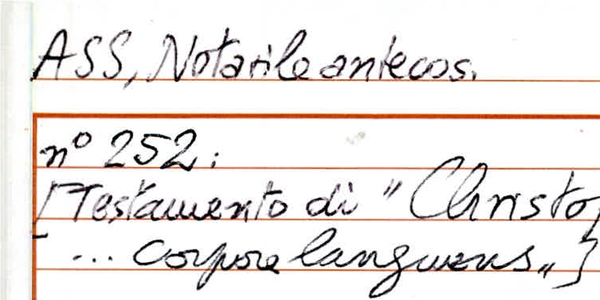 ASS, Notarile antecos.
n° 252:
[Testamento di "Christo
... corpore languens„]